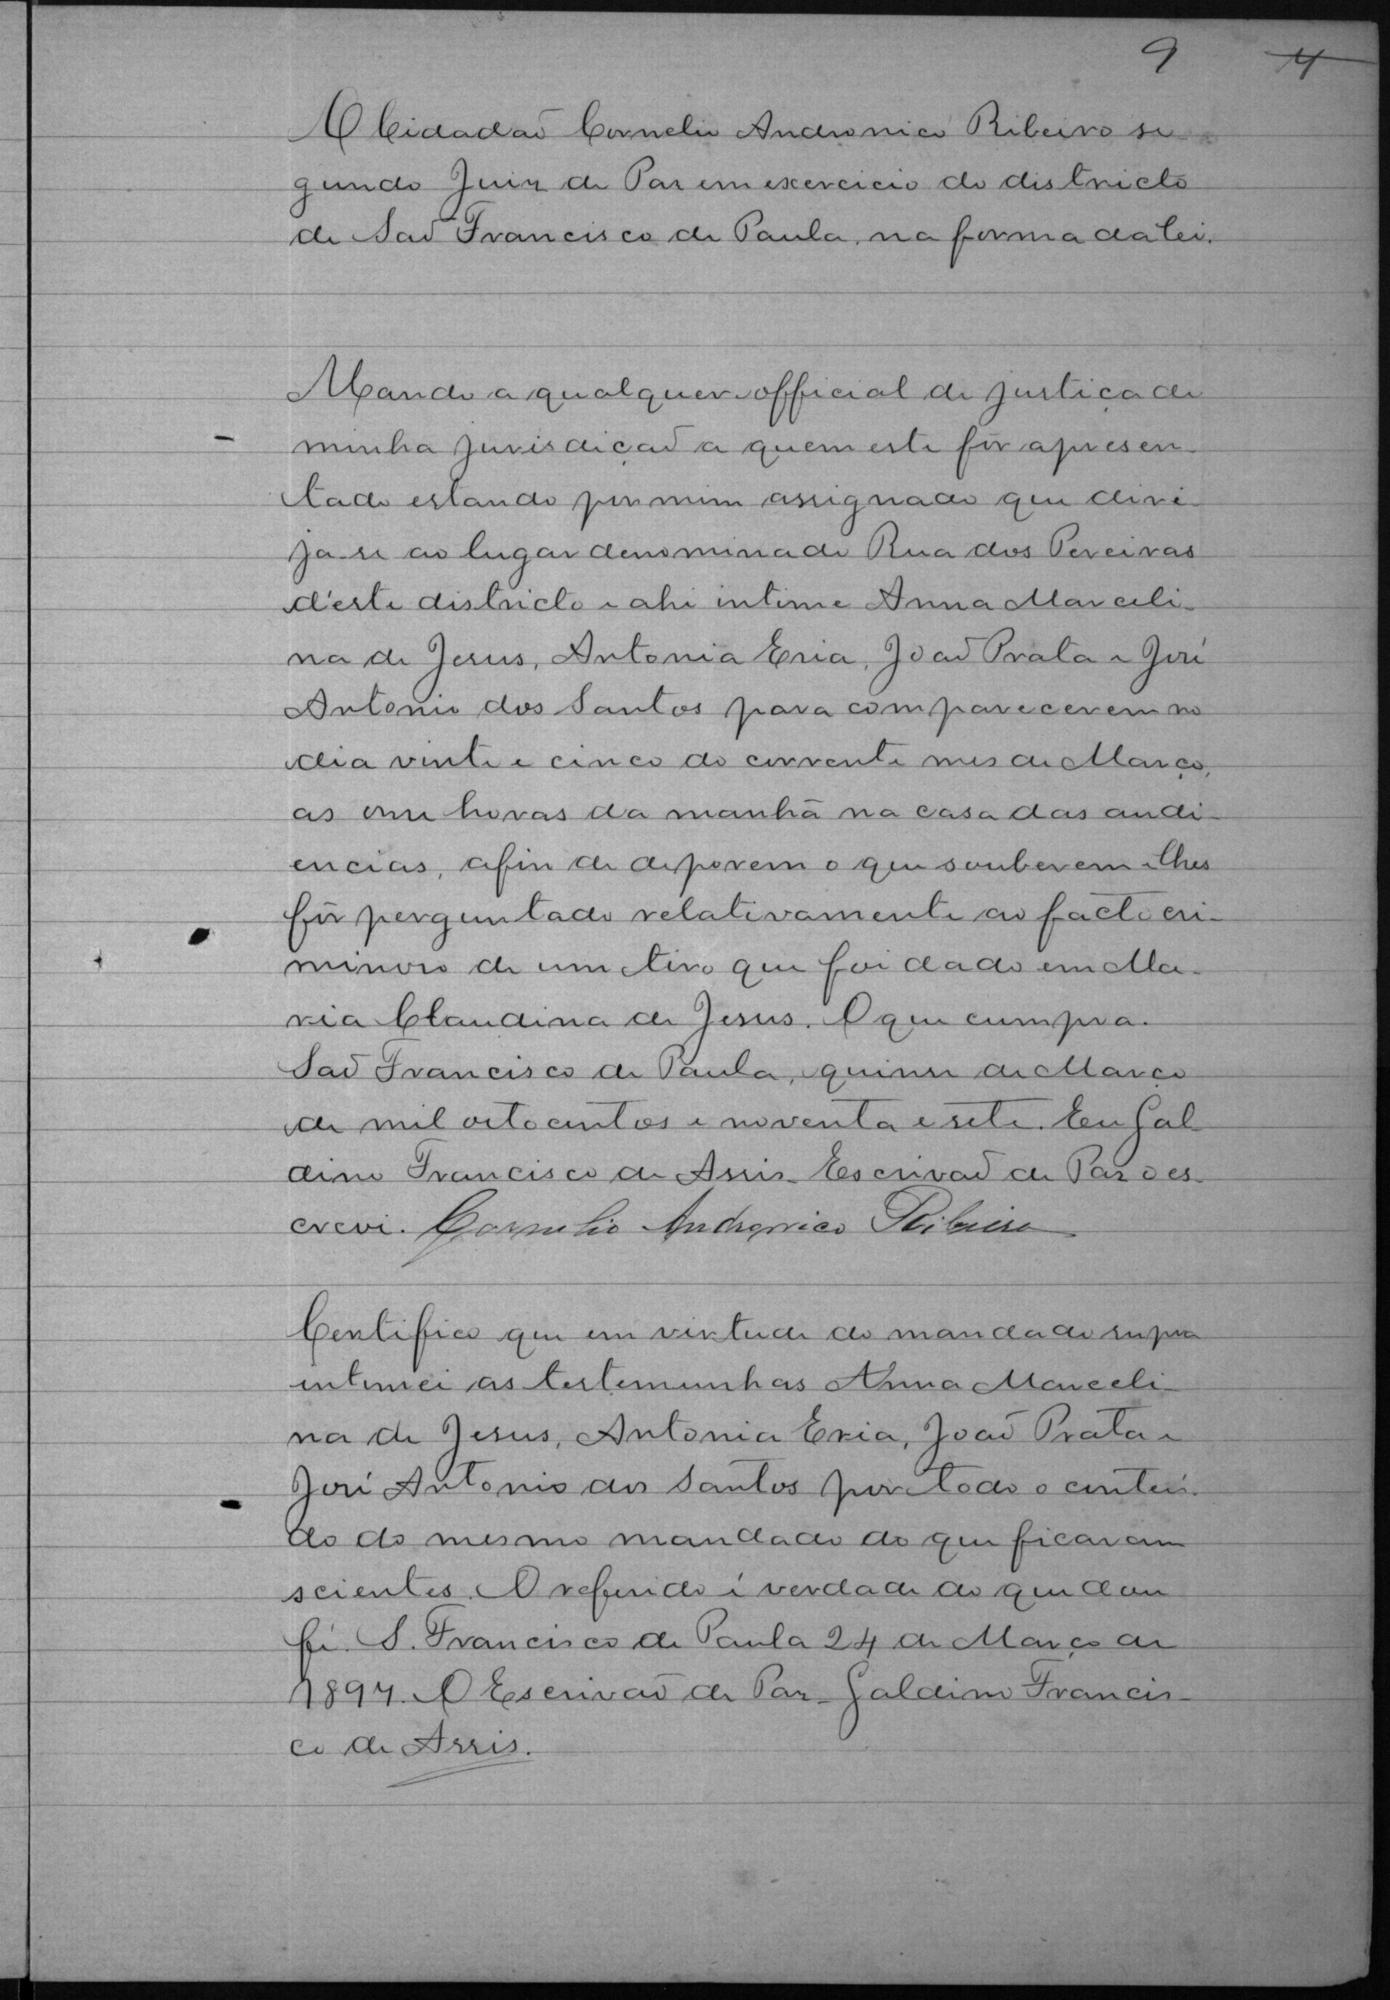 9 4
O Cidadaõ Cornelio Andronico Ribeiro se
gundo Juiz de Paz em exercicio do districto
de Saõ Francisco de Paula, na forma da lei.
Mando a qualquer official de justiça de
minha jurisdiçaõ a quem este fôr apresen-
tado estando por mim assignado que diri-
ja-se ao lugar denominado Rua dos Pereiras
d'este districto e ahi intime Anna Marceli-
na de Jesus, Antonia Eria, Joaõ Prata e José
Antonio dos Santos para comparecerem no
dia vinte e cinco do corrente mes de Março,
as onse horas da manhã na casa das audi-
encias, afin de deporem o que souberem e lhes
fôr perguntado relativamente ao facto cri-
minoso de um tiro que foi dado em Ma-
ria Claudina de Jesus. O que cumpra.
Saõ Francisco de Paula, quinse de Março
de mil oitocentos e noventa e sete. Eu Gal
dino Francisco de Assis Escrivaõ de Paz o es-
crevi. Cornelio Andronico Ribeiro
Certifico que em virtude do mandado supra
intimei as testemunhas Anna Marceli-
na de Jesus, Antonia Eria, Joaõ Prata e
José Antonio dos Santos por todo o conteú-
do do mesmo mandado do que ficaram
scientes. O referido é verdade do que dou
fé. S. Francisco de Paula 24 de Março de
1897. O Escrivaõ de Paz Galdino Francis-
co de Assis.